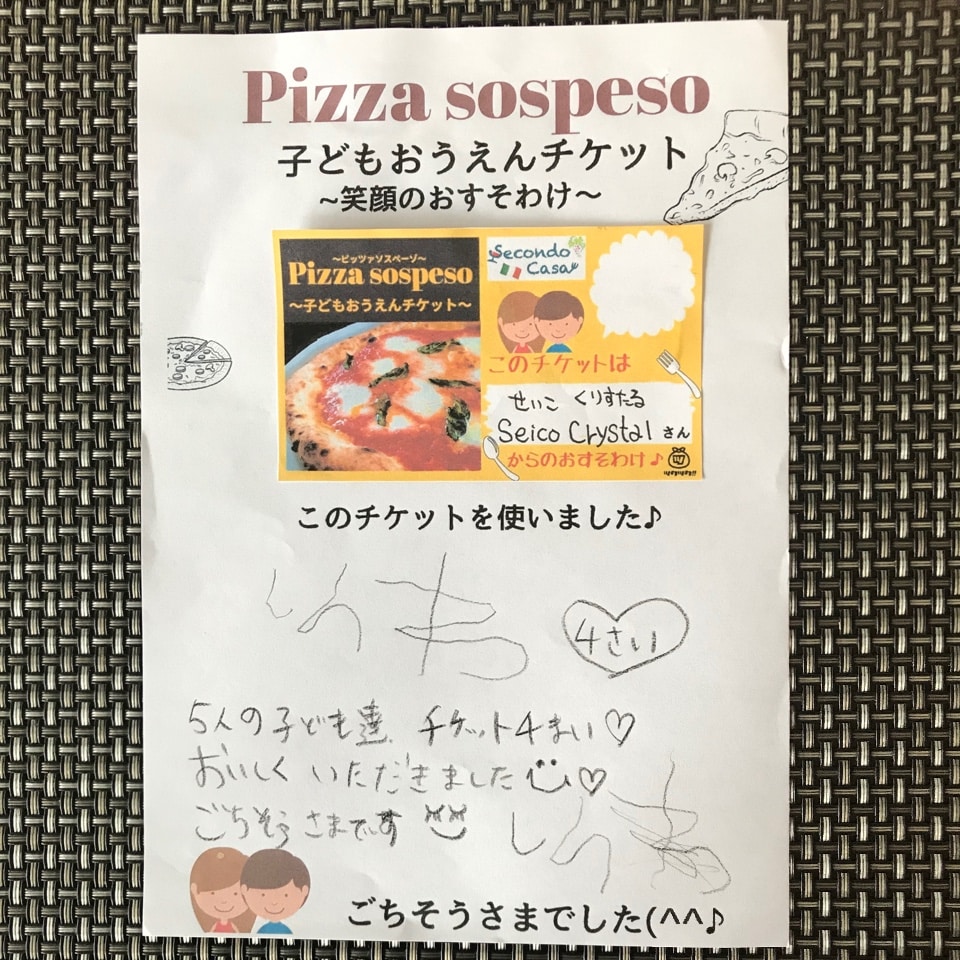 Pizza sospeso
子どもおうえんチケット
~笑顔のおすそわけ~
~ピッツァソスペーゾ~
Pizza sospeso
~子どもおうえんチケット~
Secondo
Casa
このチケットは
せいこ くりすたる
Seico Crystal さん
からのおすそわけ♪
このチケットを使いました♪
4さい
5人の子ども達 チケット4まい♡
おいしく いただきました♡
ごちそうさまです
ごちそうさまでした(^^♪